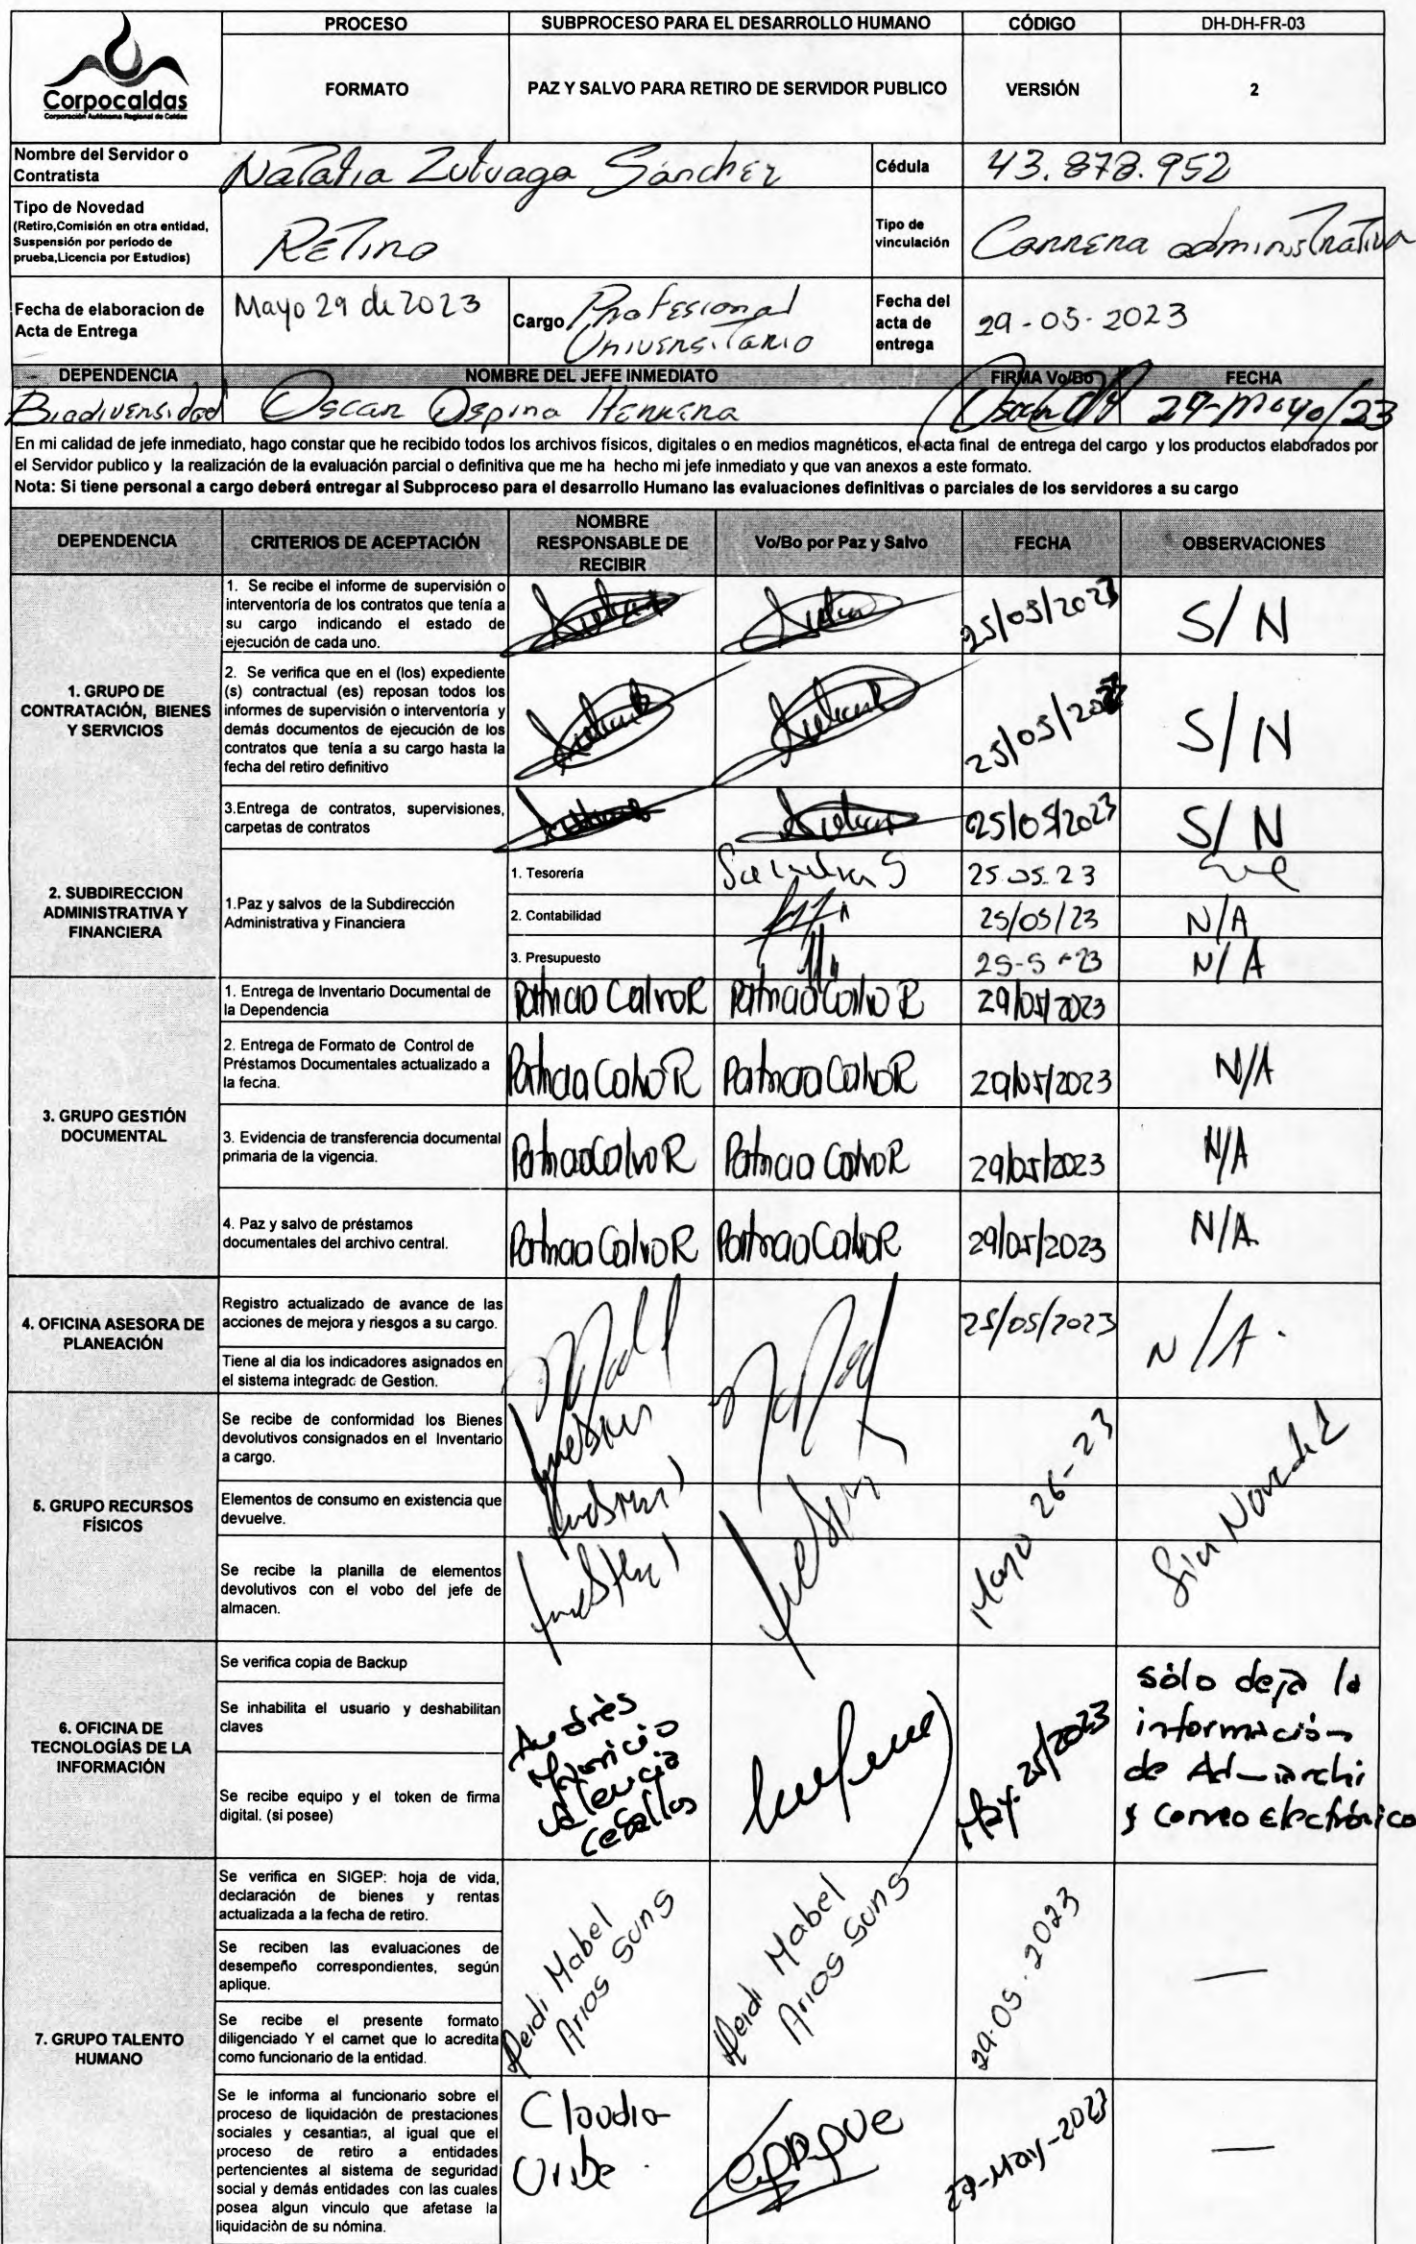 PROCESO
SUBPROCESO PARA EL DESARROLLO HUMANO
CÓDIGO
DH-DH-FR-03
Corpocaldas
Corporación Autónoma Regional de Caldas
FORMATO
PAZ Y SALVO PARA RETIRO DE SERVIDOR PUBLICO
VERSIÓN
2
Nombre del Servidor o
Contratista
Natalia Zuluaga Sánchez
Cédula
43.878.952
Tipo de Novedad
(Retiro,Comisión en otra entidad,
Suspensión por periodo de
prueba,Licencia por Estudios)
Retiro
Tipo de
vinculación
Carrera administrativa
Fecha de elaboracion de
Acta de Entrega
Mayo 29 de 2023
Cargo
Profesional
Universitario
Fecha del
acta de
entrega
29-05-2023
DEPENDENCIA
NOMBRE DEL JEFE INMEDIATO
FIRMA Vo/Bo
FECHA
Biodiversidad
Oscar Ospina Herrera
29-mayo/23
En mi calidad de jefe inmediato, hago constar que he recibido todos los archivos físicos, digitales o en medios magnéticos, el acta final de entrega del cargo y los productos elaborados por
el Servidor publico y la realización de la evaluación parcial o definitiva que me ha hecho mi jefe inmediato y que van anexos a este formato.
Nota: Si tiene personal a cargo deberá entregar al Subproceso para el desarrollo Humano las evaluaciones definitivas o parciales de los servidores a su cargo
DEPENDENCIA
CRITERIOS DE ACEPTACIÓN
NOMBRE
RESPONSABLE DE
RECIBIR
Vo/Bo por Paz y Salvo
FECHA
OBSERVACIONES
1. GRUPO DE
CONTRATACIÓN, BIENES
Y SERVICIOS
1. Se recibe el informe de supervisión o
interventoría de los contratos que tenía a
su cargo indicando el estado de
ejecución de cada uno.
25/05/2023
S/N
2. Se verifica que en el (los) expediente
(s) contractual (es) reposan todos los
informes de supervisión o interventoría y
demás documentos de ejecución de los
contratos que tenía a su cargo hasta la
fecha del retiro definitivo
25/05/2023
S/N
3.Entrega de contratos, supervisiones,
carpetas de contratos
25/05/2023
S/N
2. SUBDIRECCION
ADMINISTRATIVA Y
FINANCIERA
1.Paz y salvos de la Subdirección
Administrativa y Financiera
1. Tesorería
25.05.23
2. Contabilidad
25/05/23
N/A
3. Presupuesto
25-5-23
N/A
3. GRUPO GESTIÓN
DOCUMENTAL
1. Entrega de Inventario Documental de
la Dependencia
Patricia Calvo R
Patricia Calvo R
29/05/2023
2. Entrega de Formato de Control de
Préstamos Documentales actualizado a
la fecha.
Patricia Calvo R
Patricia Calvo R
29/05/2023
N/A
3. Evidencia de transferencia documental
primaria de la vigencia.
Patricia Calvo R
Patricia Calvo R
29/05/2023
N/A
4. Paz y salvo de préstamos
documentales del archivo central.
Patricia Calvo R
Patricia Calvo R
29/05/2023
N/A.
4. OFICINA ASESORA DE
PLANEACIÓN
Registro actualizado de avance de las
acciones de mejora y riesgos a su cargo.
Tiene al dia los indicadores asignados en
el sistema integrado de Gestion.
25/05/2023
N/A.
5. GRUPO RECURSOS
FÍSICOS
Se recibe de conformidad los Bienes
devolutivos consignados en el Inventario
a cargo.
Elementos de consumo en existencia que
devuelve.
Se recibe la planilla de elementos
devolutivos con el vobo del jefe de
almacen.
Mayo 26-23
Sin Novedad
6. OFICINA DE
TECNOLOGÍAS DE LA
INFORMACIÓN
Se verifica copia de Backup
Se inhabilita el usuario y deshabilitan
claves
Se recibe equipo y el token de firma
digital. (si posee)
Andrés
Mauricio
Valencia
Ceballos
May. 25/2023
sólo deja la
información
de Admiarchi
y correo electrónico
7. GRUPO TALENTO
HUMANO
Se verifica en SIGEP: hoja de vida,
declaración de bienes y rentas
actualizada a la fecha de retiro.
Se reciben las evaluaciones de
desempeño correspondientes, según
aplique.
Se recibe el presente formato
diligenciado Y el carnet que lo acredita
como funcionario de la entidad.
Mabel
Arias
Mabel
Arias
29.05.2023
Se le informa al funcionario sobre el
proceso de liquidación de prestaciones
sociales y cesantias, al igual que el
proceso de retiro a entidades
pertencientes al sistema de seguridad
social y demás entidades con las cuales
posea algun vinculo que afetase la
liquidación de su nómina.
Claudia
Uribe.
29-May-2023